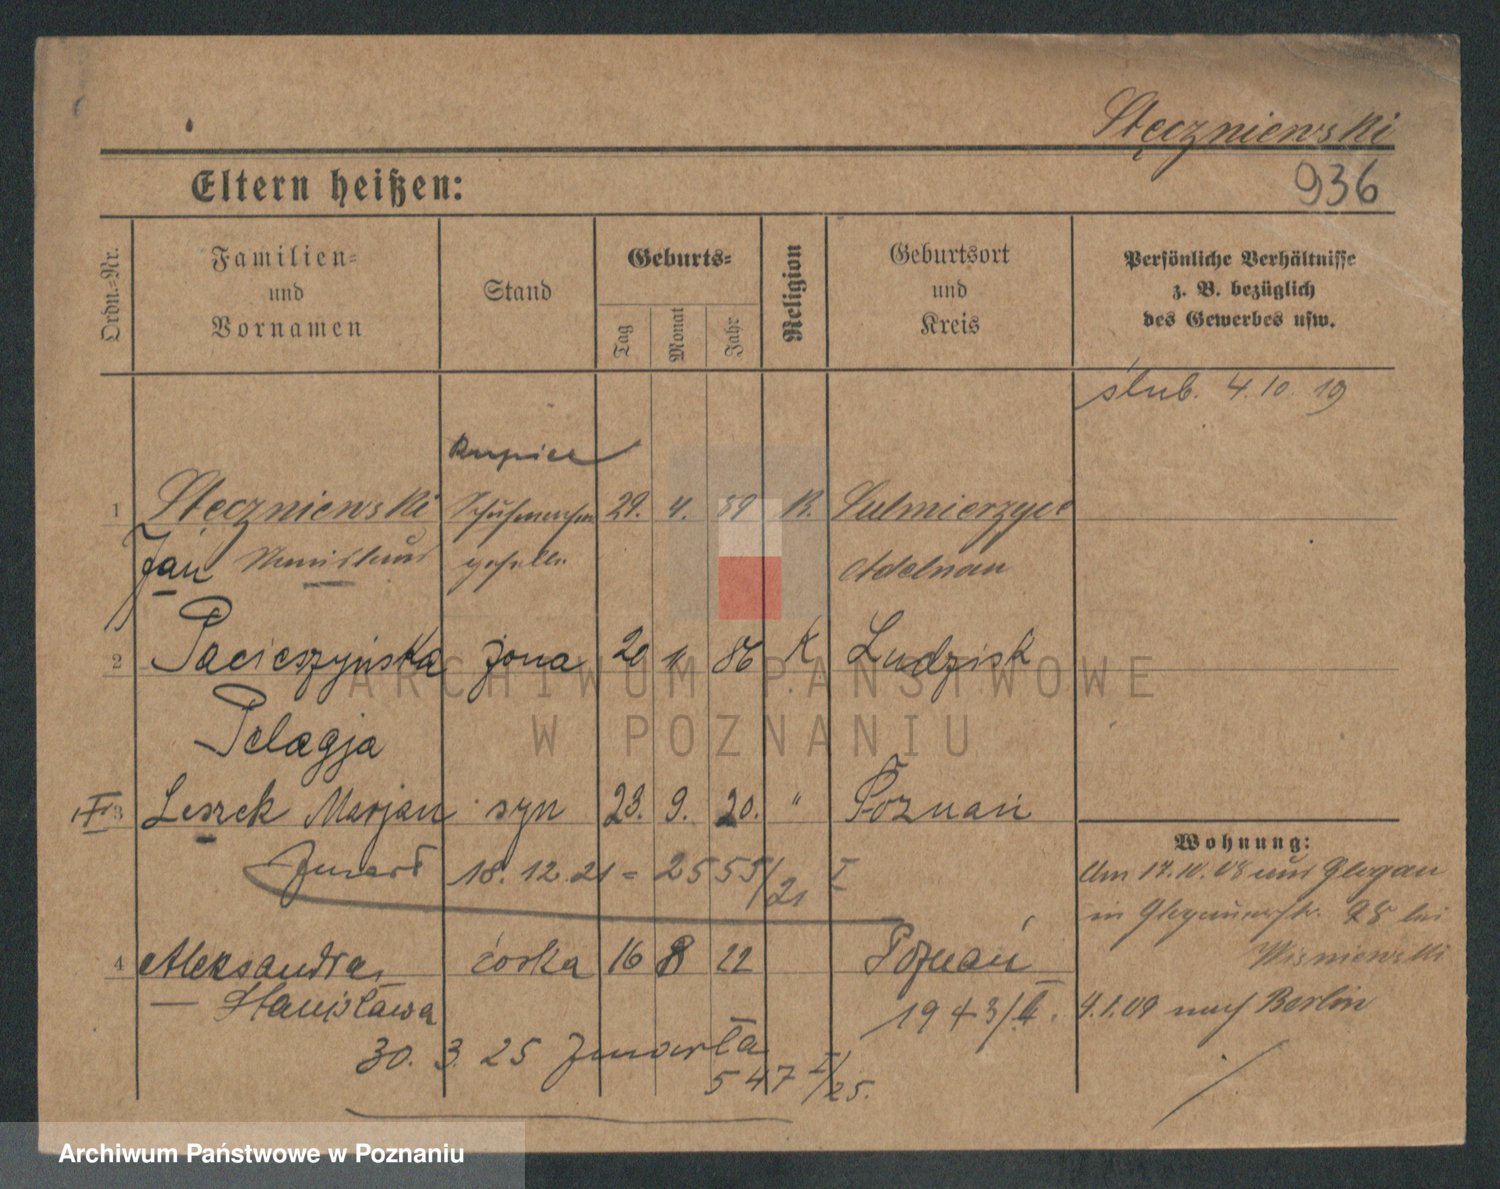 Stęczniewski
936
Eltern heißen:
Ordn.-Nr.
Familien- und Vornamen
Stand
Geburts-
Tag
Monat
Jahr
Religion
Geburtsort und Kreis
Persönliche Verhältnisse
z. B. bezüglich
des Gewerbes usw.
ślub. 4.10.19
kupiec
1 Stęczniewski 29. 4. 89 K. Sulmierzyce
Jan geselle Adelnau
2 Pacieszyńska żona 20 11 86 K Ludzisk
Pelagja
3 Leszek Marjan syn 23. 9. 20. " Poznań
Wohnung:
Zmarł 18.12.21 = 2555/21 I
Am 17.10.08 aus Glogau
in Glogauerstr. 98 bei
Wisniewski
4 Aleksandra córka 16 8 22 Poznań
Stanisława 1943/II.
4.1.09 nach Berlin
30. 3. 25 Zmarła
547 I/25.
ARCHIWUM PAŃSTWOWE
W POZNANIU
Archiwum Państwowe w Poznaniu